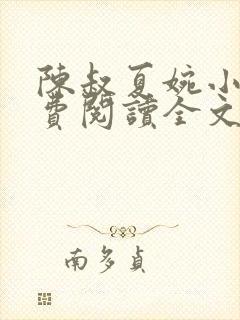 陳叔夏婉小
費閱讀全文
南多貞